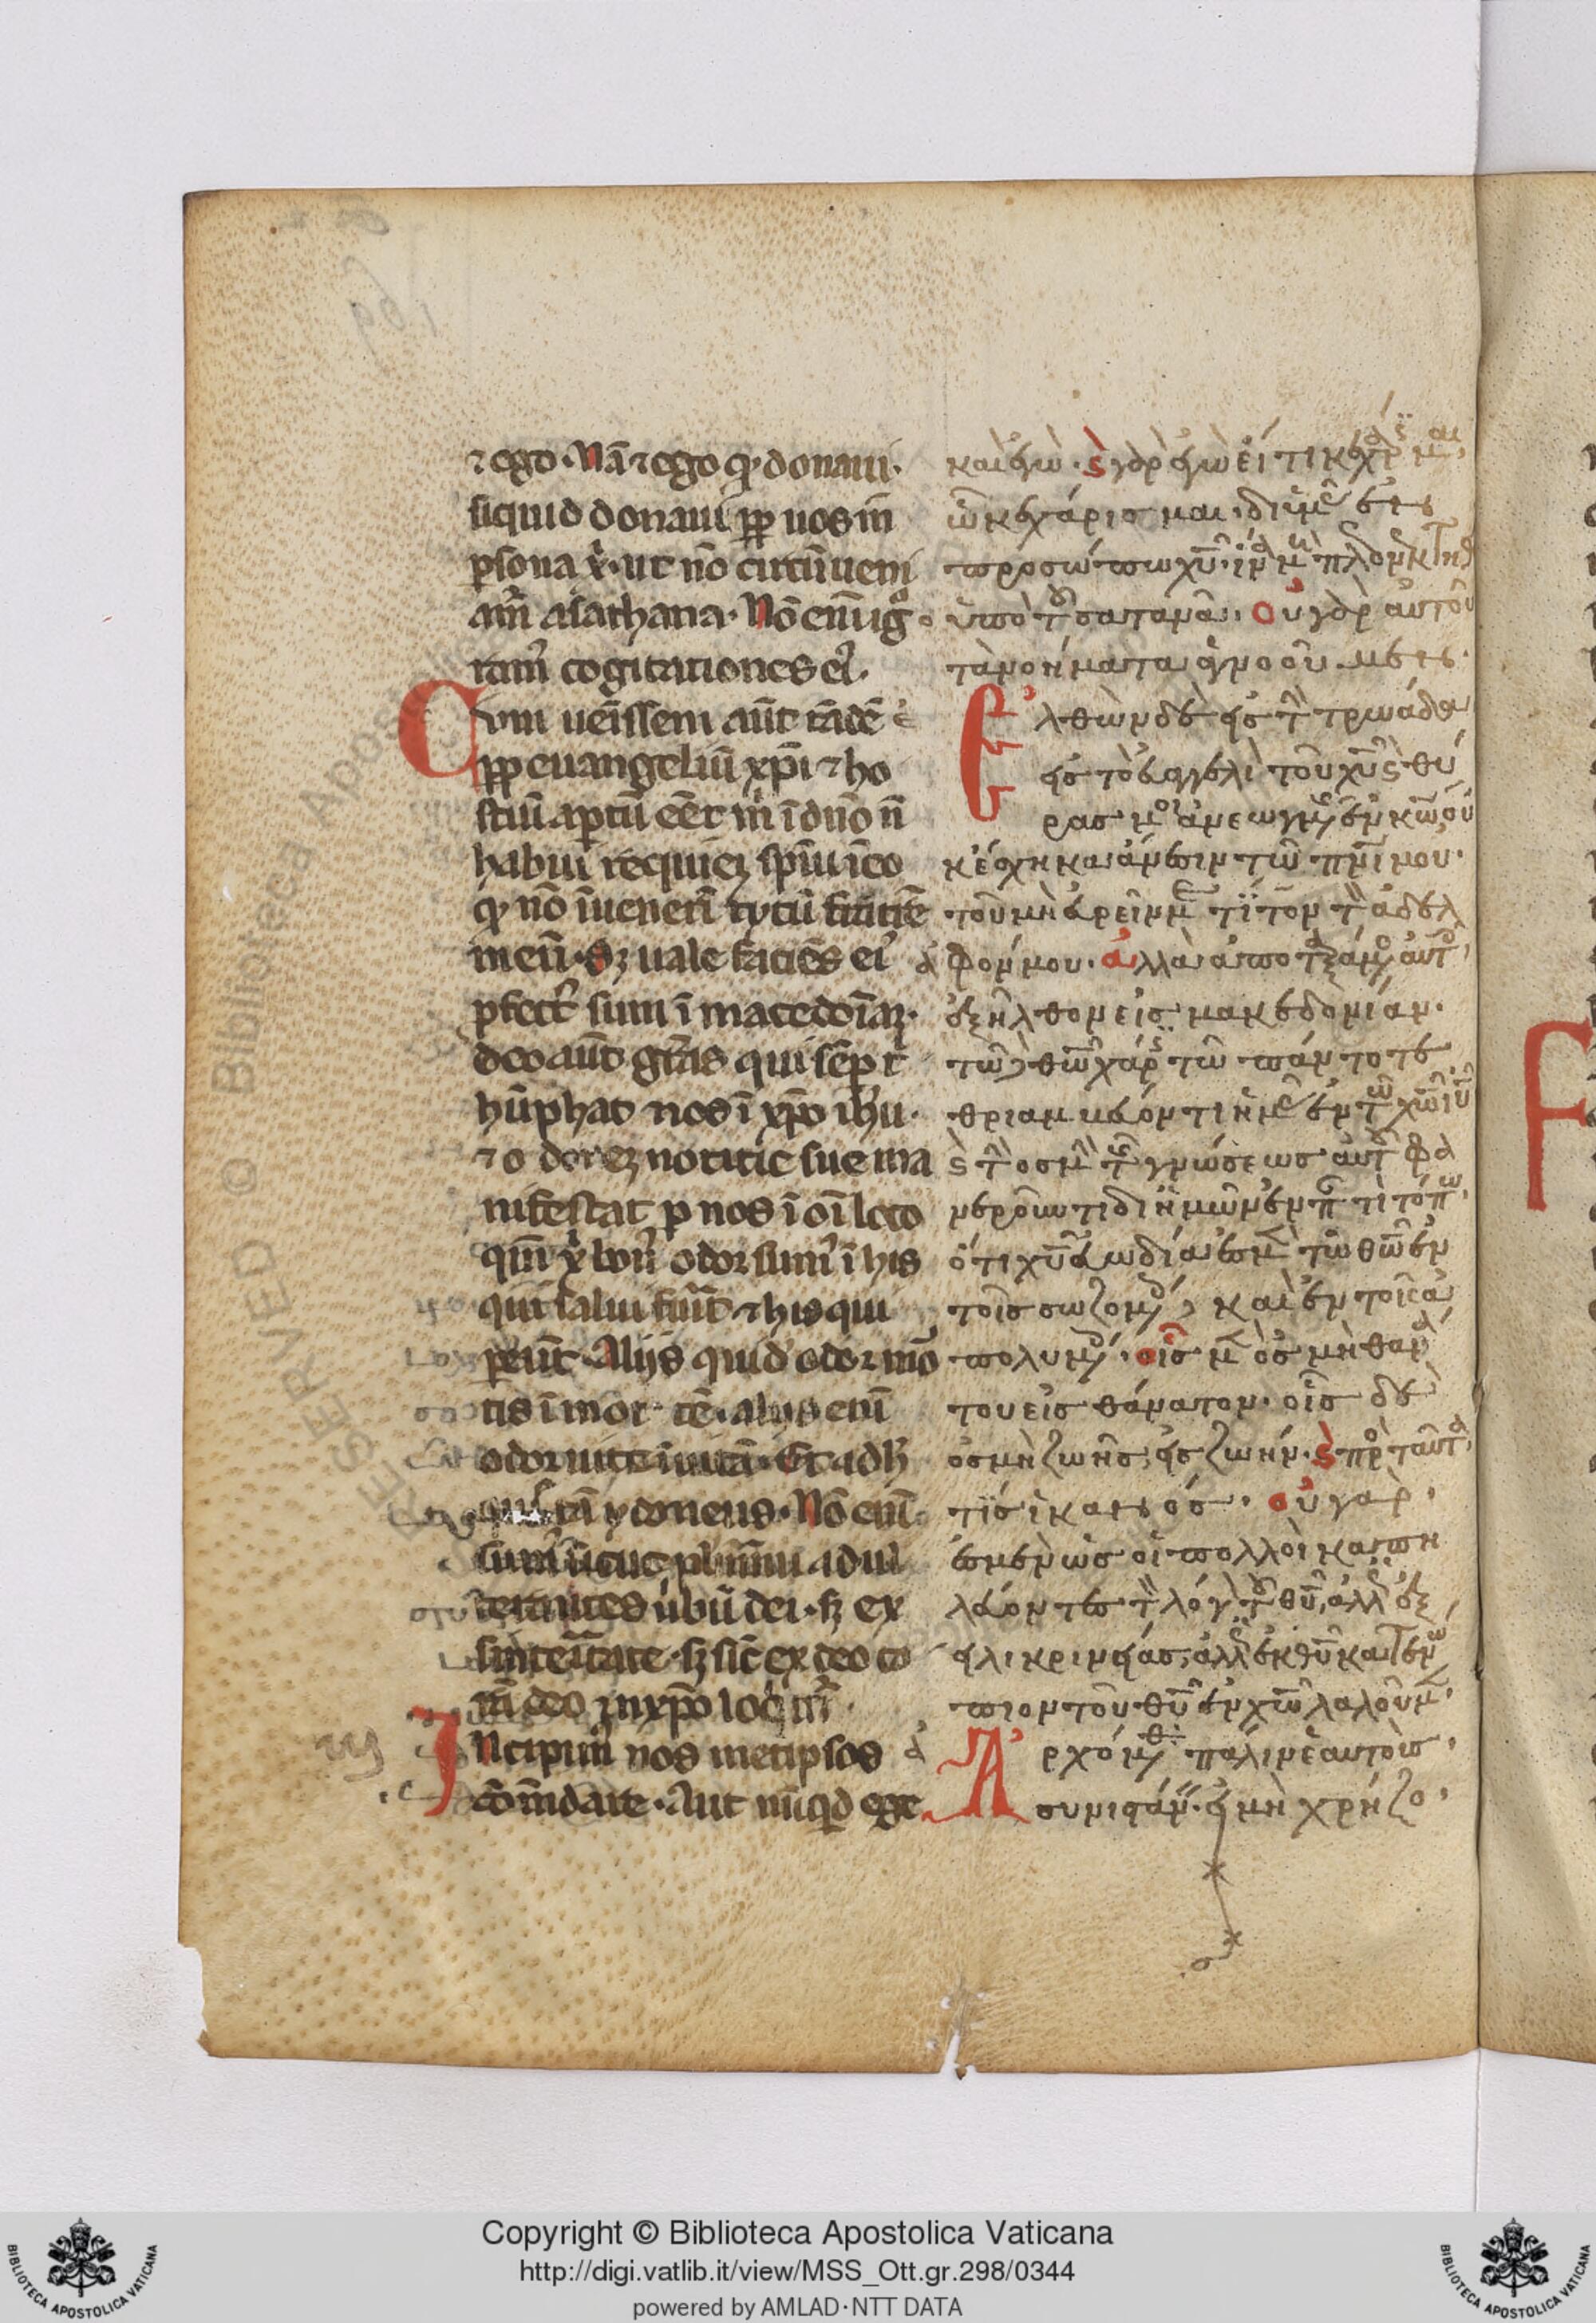 ⁊ ego · Nā ⁊ ego qͥ donaui ·
siquid donaui ꝓp uos in
ꝑsona xͥ · ut nō circūueni
am̄ a sathana · Nō enī ig
ram̄ cogitationes eꝰ ·
Cum uēissem aūt
ꝓp euangeliū xp̄i ⁊ ho
stiū aꝑtū eēt m̄ ī dn̄o n̄
habui requiēꝫ sp̄iu īeo
qꝫ nō īuenerī tytū
meū · Sꝫ uale faciēs eiˢ
ꝓfectꝰ sum ī macedoīaꝫ ·
deo aūt gr̄as qui sēꝑ t
ūphat nos ī xp̄o ih̄u ·
⁊ odoreꝫ noticie sue ma
nifestat ꝑ nos ī oī loco
qm̄ xͥ bonꝰ odor sumꝰ ī his
qui salui fiūt ⁊ his qui
ꝑeūt · Alijs quid̄ odor mō
tis ī mortē · alijs enī
odor uite ī uitā · Et ad h̄
tā ydoneus · Nō enī
sumꝰ sicut adul
terātes ūbū dei · sꝫ ex
sinceritate · sꝫ sic̄ ex deo co
rā deo in xp̄o loqꝰ
Incipimꝰ nos metipsos
cōm̄dare · Aut nūqͥd ege
καὶ ἐγὼ · ϛ̀ γὰρ ἐγὼ εἴ τι κεχάρισμαι
ὧ κεχάρισμαι · δι' ὑμᾶς ἐν
προσώπω χῦ · ἵνα μὴ πλεονεκτηθ
ὑπὸ τοῦ σατανᾶ · οὐ γὰρ αὐτοῦ
τὰ νοήματα ἀγνοοῦμεν ·
Ἐλθὼν δὲ εἰς τὴν τρωάδα
εἰς τὸ εὐαγγέλι τοῦ χῦ ϛ̀ θύ
ρας μοι ἀνεωγμένης ἐν κῶ οὐ
κ ἔσχηκα ἄνεσιν τῶ πνί μου ·
τοῦ μὴ εὑρεῖν με τίτον τὸν ἀδελ
φόν μου · ἀλλὰ ἀποταξάμενος αὐτοῖς
ἐξῆλθον εἰς μακεδονίαν ·
τῶ θῶ χάρις τῶ πάντοτε
θριαμβεύοντι ἡμᾶς ἐν τῶ χῶ ιῦ
ϛ̀ τὴν ὀσμὴν τῆς γνώσεως αὐτοῦ φα
νεροῦντι δι' ἡμῶν ἐν παντὶ τόπω ·
ὅτι χῦ εὐωδία ἐσμὲν τῶ θῶ ἐν
τοῖς σωζομένοις, καὶ ἐν τοῖς ἀ
πολυμένοις · οἷς μὲν ὀσμὴ θανά
του εἰς θάνατον · οἷς δὲ
ὀσμὴ ζωῆς εἰς ζωήν · ϛ̀ πρὸς ταῦτα
τίς ἱκανός · οὐ γάρ ·
ἐσμεν ὡς οἱ πολλοὶ καπη
λεύοντες τὸν λόγον τοῦ θῦ, ἀλλ' ὡς ἐξ
εἰλικρινείας, ἀλλ' ὡς ἐκ θῦ κατεν
πιον τοῦ θῦ ἐν χῶ λαλοῦμεν ·
Ἀρχόμεθα πάλιν ἑαυτοὺς
συνιστάνειν · εἰ μὴ χρήζο ·
Copyright © Biblioteca Apostolica Vaticana
http://digi.vatlib.it/view/MSS_Ott.gr.298/0344
powered by AMLAD·NTT DATA